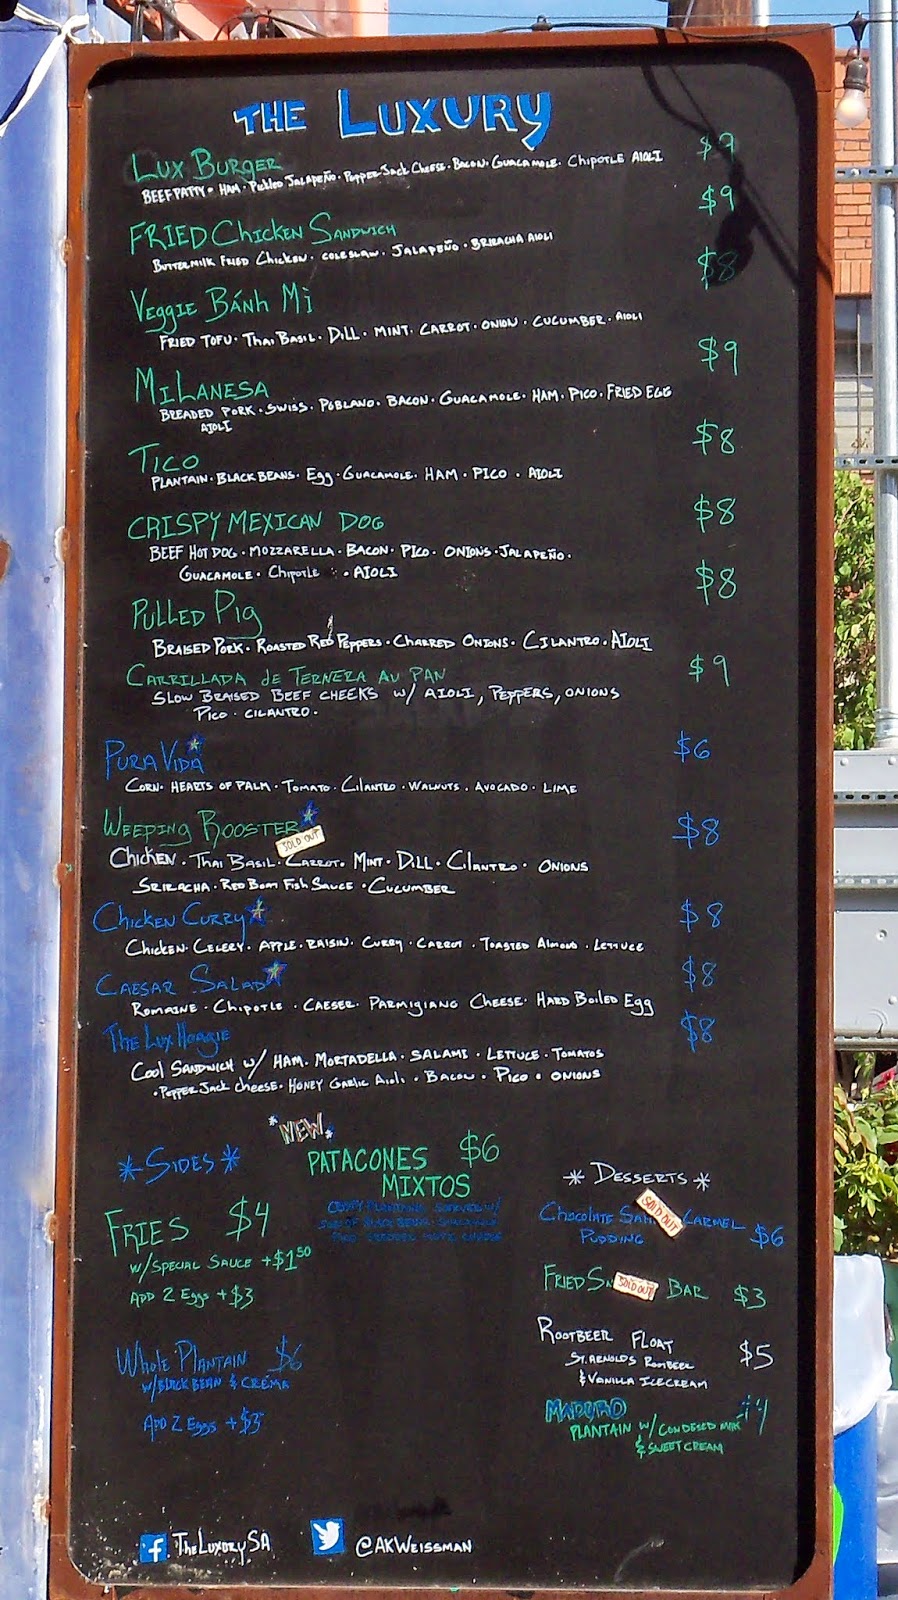 THE LUXURY
LUX BURGER $9
BEEF PATTY · HAM · Pickled JALAPEÑO · Pepper Jack Cheese · BACON · GUACAMOLE · CHIPOTLE AIOLI
FRIED Chicken SANDWICH $9
BUTTERMILK FRIED Chicken · COLESLAW · JALAPEÑO · SRIRACHA AIOLI
VEGGIE BÁNH Mi $8
FRIED TOFU · THAI BASIL · DILL · MINT · CARROT · ONION · CUCUMBER · AIOLI
MILANESA $9
BREADED PORK · SWISS · POBLANO · BACON · GUACAMOLE · HAM · PICO · FRIED EGG
AIOLI
TICO $8
PLANTAIN · BLACK BEANS · Egg · GUACAMOLE · HAM · PICO · AIOLI
CRISPY MEXICAN DOG $8
BEEF HOT DOG · MOZZARELLA · BACON · PICO · ONIONS · JALAPEÑO ·
GUACAMOLE · Chipotle · AIOLI
PULLED Pig $8
BRAISED PORK · ROASTED RED PEPPERS · CHARRED ONIONS · CILANTRO · AIOLI
CARRILLADA de TERNERA AU PAN $9
SLOW BRAISED BEEF CHEEKS W/ AIOLI, PEPPERS, ONIONS
PICO · CILANTRO ·
PURA VIDA $6
CORN · HEARTS OF PALM · TOMATO · CILANTRO · WALNUTS · AVOCADO · LIME
WEEPING ROOSTER $8
SOLD OUT
Chicken · THAI BASIL · CARROT · MINT · DILL · CILANTRO · ONIONS
SRIRACHA · RED BOAT FISH SAUCE · CUCUMBER
Chicken Curry $8
Chicken · CELERY · APPLE · RAISIN · CURRY · CARROT · TOASTED ALMOND · LETTUCE
CAESAR SALAD $8
ROMAINE · Chipotle · CAESER · PARMIGIANO CHEESE · HARD BOILED Egg
The Lux Hoagie $8
COOL SANDWICH W/ HAM · MORTADELLA · SALAMI · LETTUCE · TOMATOS
· PEPPER JACK CHEESE · HONEY GARLIC AIOLI · BACON · PICO · ONIONS
*NEW*
*SIDES*
PATACONES $6
MIXTOS
FRIES $4
W/SPECIAL SAUCE +$1.50
ADD 2 Eggs +$3
WHOLE PLANTAIN $6
W/BLACK BEAN & CREMA
ADD 2 Eggs +$3
* DESSERTS *
CHOCOLATE CARMEL $6
PUDDING
SOLD OUT
FRIED BAR $3
SOLD OUT
ROOTBEER FLOAT $5
ST. ARNOLDS ROOTBEER
& VANILLA ICECREAM
MADURO
PLANTAIN W/
& SWEET CREAM
f TheLuxurySA
@AKWEISSMAN